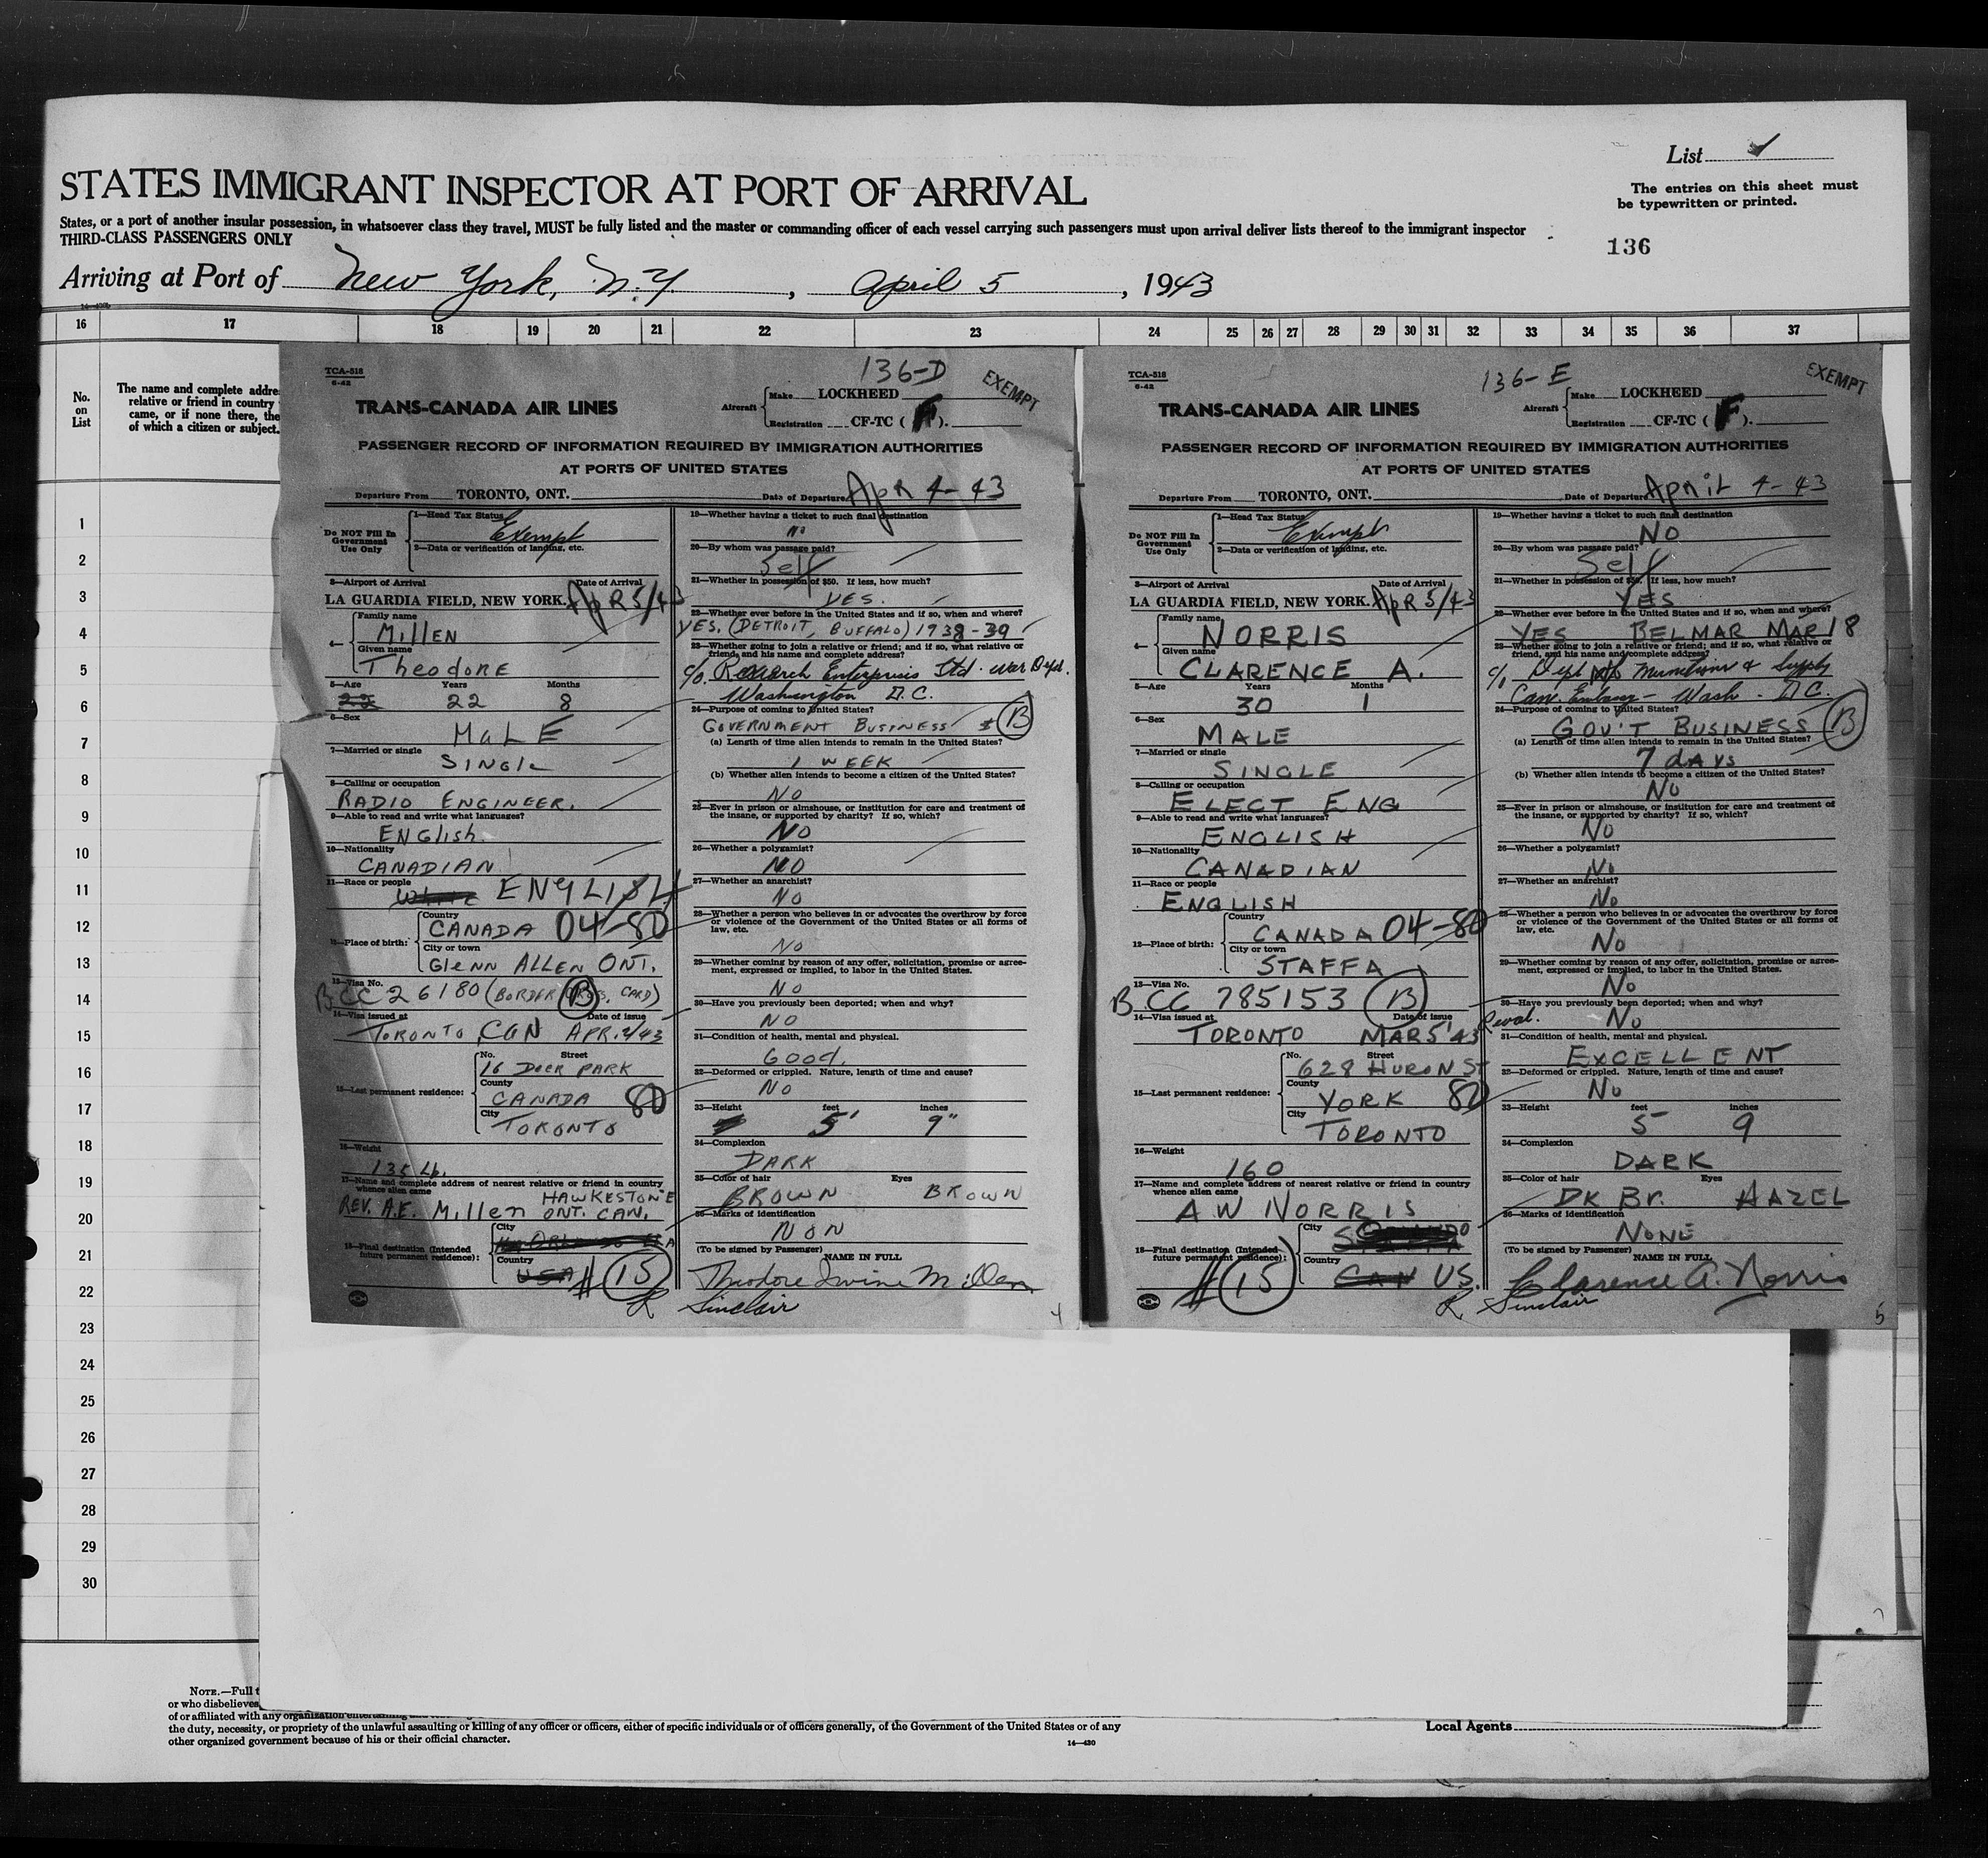 List
STATES IMMIGRANT INSPECTOR AT PORT OF ARRIVAL
The entries on this sheet must
be typewritten or printed.
States, or a port of another insular possession, in whatsoever class they travel, MUST be fully listed and the master or commanding officer of each vessel carrying such passengers must upon arrival deliver lists thereof to the immigrant inspector
THIRD-CLASS PASSENGERS ONLY
136
Arriving at Port of New York, N.Y., April 5, 1943
16 17 18 19 20 21 22 23 24 25 26 27 28 29 30 31 32 33 34 35 36 37
No.
on
List
The name and complete addre
relative or friend in country
came, or if none there, the
of which a citizen or subject.
1
2
3
4
5
6
7
8
9
10
11
12
13
14
15
16
17
18
19
20
21
22
23
24
25
26
27
28
29
30
TCA-518
6-42
136-D
EXEMPT
TRANS-CANADA AIR LINES
Aircraft
Make LOCKHEED
Registration CF-TC (F).
PASSENGER RECORD OF INFORMATION REQUIRED BY IMMIGRATION AUTHORITIES
AT PORTS OF UNITED STATES
Departure From TORONTO, ONT. Date of Departure Apr 4-43
Do NOT Fill In
Government
Use Only
1—Head Tax Status
Exempt
2—Data or verification of landing, etc.
3—Airport of Arrival Date of Arrival
LA GUARDIA FIELD, NEW YORK. Apr 5/43
4—
Family name
Millen
Given name
Theodore
5—Age Years Months
22 22 8
6—Sex
MaLE
7—Married or single
SINGle
8—Calling or occupation
RADIO ENGINEER.
9—Able to read and write what languages?
ENGlish.
10—Nationality
CANADIAN
11—Race or people
White ENGLISH
12—Place of birth:
Country
CANADA 04-80
City or town
Glenn ALLEN ONT.
13—Visa No.
B.CC 26180 (BORDER CROSS. CARD) B
14—Visa issued at Date of issue
TORONTO CAN APR. 2/43
15—Last permanent residence:
No. Street
16 Deer PARK
County
CANADA 80
City
TORONTO
16—Weight
135 Lb.
17—Name and complete address of nearest relative or friend in country
whence alien came
HAWKESTONE
REV. A.E. Millen ONT. CAN.
18—Final destination (Intended
future permanent residence):
City
Country
USA # 15
19—Whether having a ticket to such final destination
No
20—By whom was passage paid?
Self
21—Whether in possession of $50. If less, how much?
YES.
22—Whether ever before in the United States and if so, when and where?
YES. (DETROIT, BUFFALO) 1938-39
23—Whether going to join a relative or friend; and if so, what relative or
friend, and his name and complete address?
c/o. Research Enterprises Ltd. War Dept.
Washington D.C.
24—Purpose of coming to United States?
GOVERNMENT BUSINESS B
(a) Length of time alien intends to remain in the United States?
1 WEEK
(b) Whether alien intends to become a citizen of the United States?
NO
25—Ever in prison or almshouse, or institution for care and treatment of
the insane, or supported by charity? If so, which?
NO
26—Whether a polygamist?
NO
27—Whether an anarchist?
NO
28—Whether a person who believes in or advocates the overthrow by force
or violence of the Government of the United States or all forms of
law, etc.
NO
29—Whether coming by reason of any offer, solicitation, promise or agree-
ment, expressed or implied, to labor in the United States.
NO
30—Have you previously been deported; when and why?
NO
31—Condition of health, mental and physical.
Good.
32—Deformed or crippled. Nature, length of time and cause?
NO
33—Height feet inches
5' 9"
34—Complexion
DARK
35—Color of hair Eyes
BROWN BROWN
36—Marks of identification
NON
(To be signed by Passenger) NAME IN FULL
Theodore Irvine Millen
R Sinclair
4
TCA-518
6-42
136-E
EXEMPT
TRANS-CANADA AIR LINES
Aircraft
Make LOCKHEED
Registration CF-TC (F).
PASSENGER RECORD OF INFORMATION REQUIRED BY IMMIGRATION AUTHORITIES
AT PORTS OF UNITED STATES
Departure From TORONTO, ONT. Date of Departure April 4-43
Do NOT Fill In
Government
Use Only
1—Head Tax Status
Exempt
2—Data or verification of landing, etc.
3—Airport of Arrival Date of Arrival
LA GUARDIA FIELD, NEW YORK. Apr 5/43
4—
Family name
NORRIS
Given name
CLARENCE A.
5—Age Years Months
30 1
6—Sex
MALE
7—Married or single
SINGLE
8—Calling or occupation
ELECT ENG
9—Able to read and write what languages?
ENGLISH
10—Nationality
CANADIAN
11—Race or people
ENGLISH
12—Place of birth:
Country
CANADA 04-80
City or town
STAFFA
13—Visa No.
B.CC 785153 B
14—Visa issued at Date of issue
TORONTO MAR 5'43
15—Last permanent residence:
No. Street
628 HURON ST
County
YORK 80
City
TORONTO
16—Weight
160
17—Name and complete address of nearest relative or friend in country
whence alien came
A W NORRIS
18—Final destination (Intended
future permanent residence):
City
Country
CAN US.
# 15
19—Whether having a ticket to such final destination
NO
20—By whom was passage paid?
Self
21—Whether in possession of $50. If less, how much?
YES
22—Whether ever before in the United States and if so, when and where?
YES BELMAR MAR 18
23—Whether going to join a relative or friend; and if so, what relative or
friend, and his name and complete address?
c/o Dept of Munitions & Supply
Can. Embassy - Wash. D.C.
24—Purpose of coming to United States?
GOV'T BUSINESS B
(a) Length of time alien intends to remain in the United States?
7 dAYS
(b) Whether alien intends to become a citizen of the United States?
No
25—Ever in prison or almshouse, or institution for care and treatment of
the insane, or supported by charity? If so, which?
No
26—Whether a polygamist?
No
27—Whether an anarchist?
No
28—Whether a person who believes in or advocates the overthrow by force
or violence of the Government of the United States or all forms of
law, etc.
No
29—Whether coming by reason of any offer, solicitation, promise or agree-
ment, expressed or implied, to labor in the United States.
No
30—Have you previously been deported; when and why?
No
31—Condition of health, mental and physical.
EXCELLENT
32—Deformed or crippled. Nature, length of time and cause?
No
33—Height feet inches
5 9
34—Complexion
DARK
35—Color of hair Eyes
DK Br. HAZEL
36—Marks of identification
NONE
(To be signed by Passenger) NAME IN FULL
Clarence A. Norris
R Sinclair
5
NOTE.—Full t
or who disbelieves
of or affiliated with any organization entertaining
the duty, necessity, or propriety of the unlawful assaulting or killing of any officer or officers, either of specific individuals or of officers generally, of the Government of the United States or of any
other organized government because of his or their official character.
14—430
Local Agents